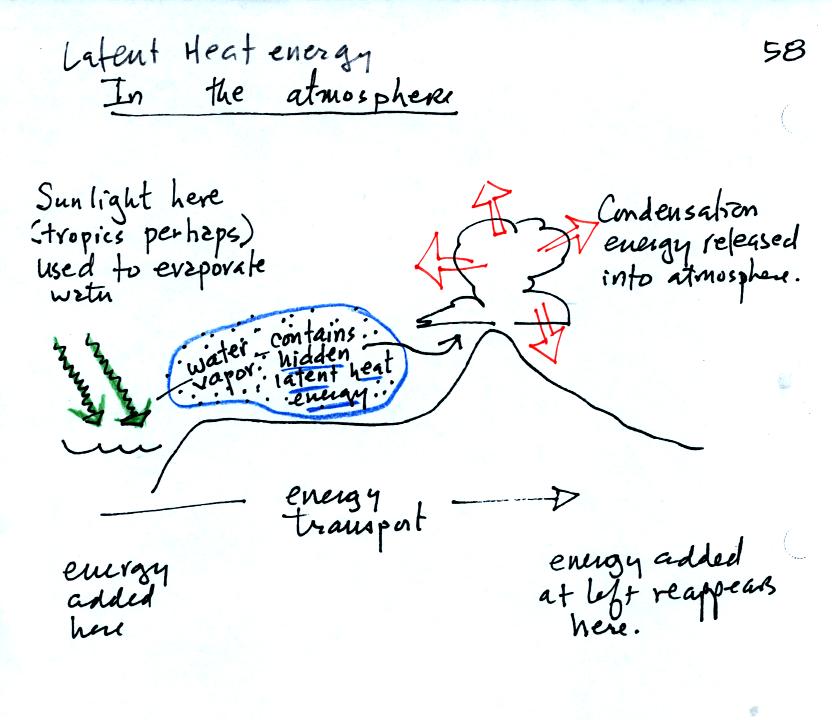 Latent Heat energy
In the atmosphere
58
Sunlight here
(tropics perhaps)
used to evaporate
water
Condensation
energy released
into atmosphere.
water
vapor
contains
hidden
latent heat
energy
energy
transport
energy
added
here
energy added
at left reappears
here.